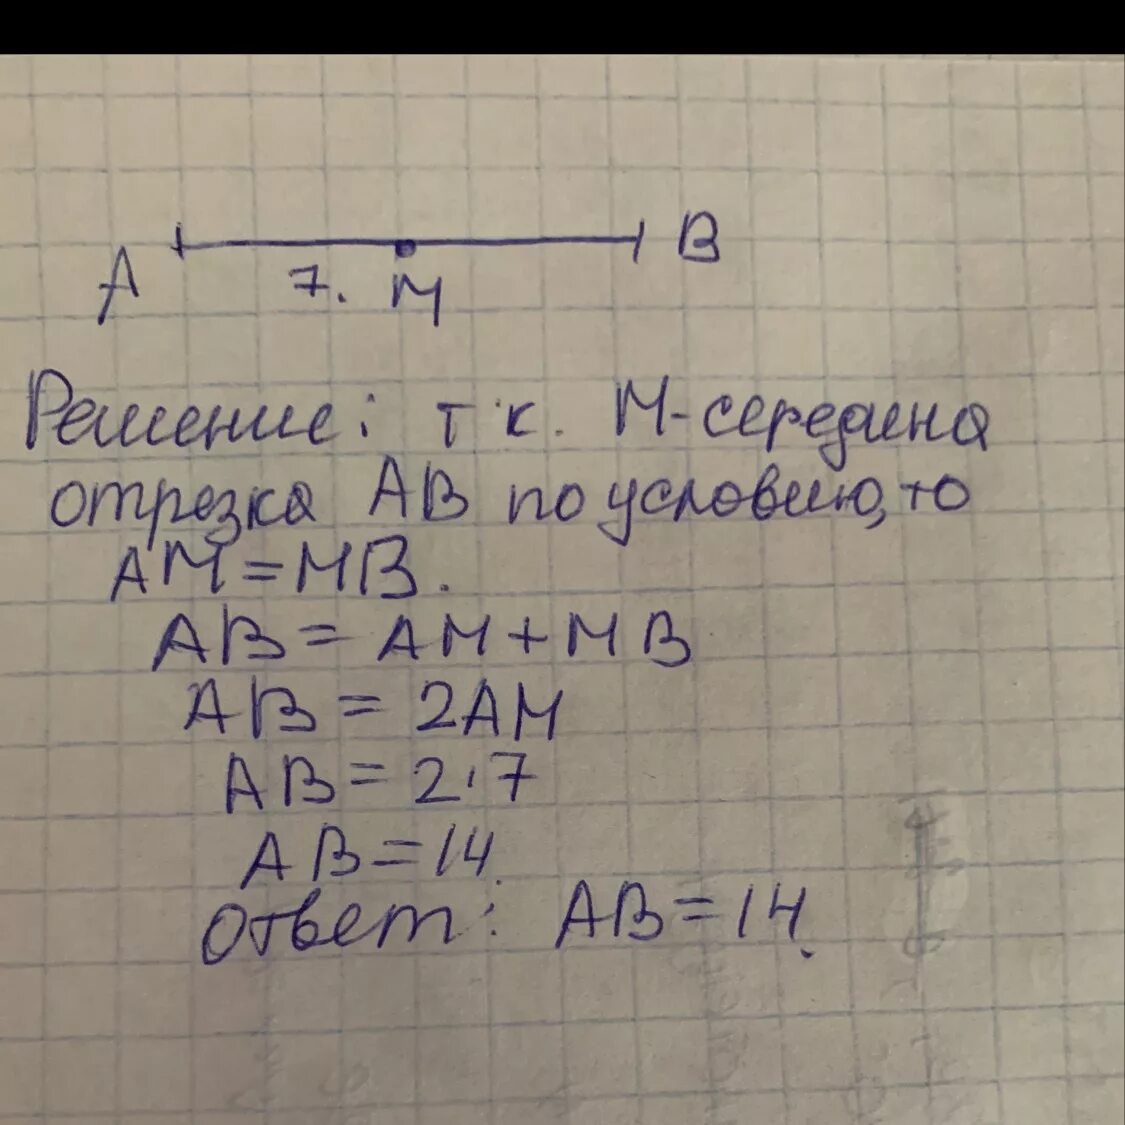 A 7. М В
Решение: т.к. М-середина
отрезка АВ по условию, то
АМ=МВ.
АВ = АМ+МВ
АВ = 2АМ
АВ = 2·7
АВ = 14.
Ответ: АВ = 14.